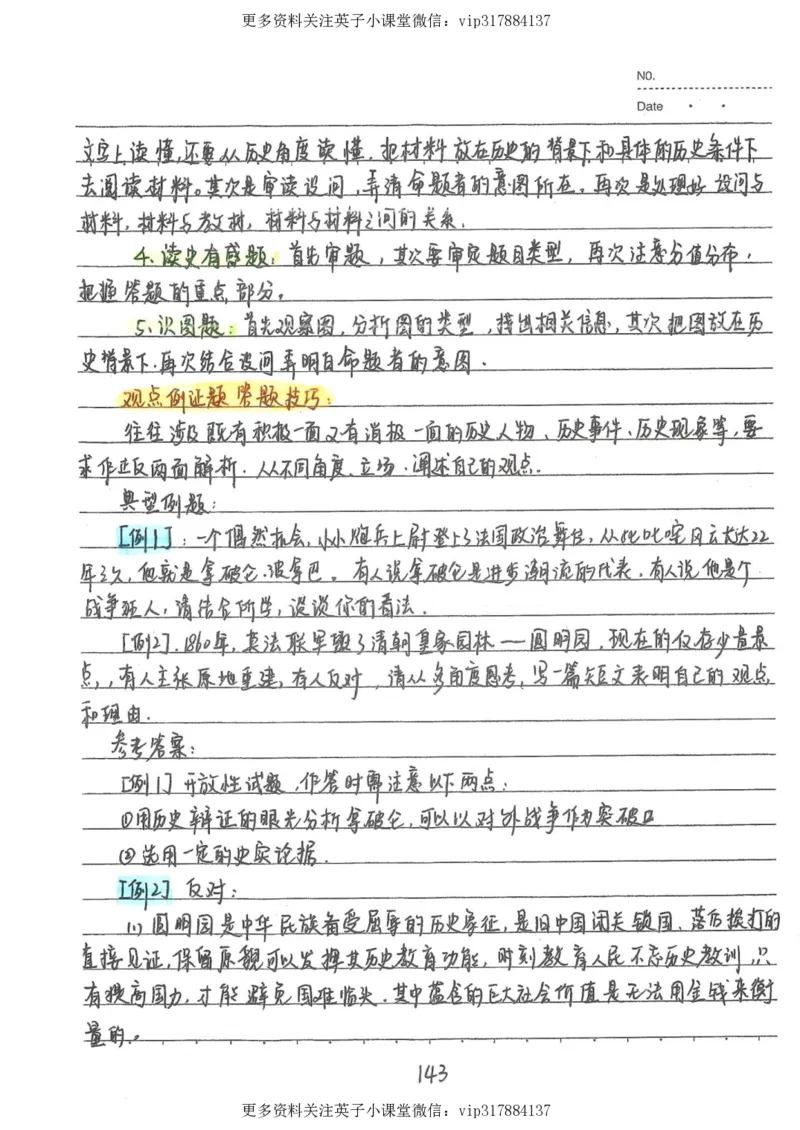 更多资料关注英子小课堂微信：vip317884137
NO.
Date
文字上读懂,还要从历史角度读懂，把材料放在历史的背景下和具体的历史条件下
去阅读材料。其次是审读设问，弄清命题者的意图所在。再次是处理好设问与
材料，材料与教材，材料与材料之间的关系.
4.读史有感题：首先审题，其次要审定题目类型，再次注意分值分布，
把握答题的重点部分。
5.识图题：首先观察图,分析图的类型，找出相关信息，其次把图放在历
史背景下.再次结合设问弄明白命题者的意图.
观点例证题答题技巧：
往往涉及既有积极一面又有消极一面的历史人物、历史事件、历史现象等，要
求作正反两面解析.从不同角度、立场.阐述自己的观点.
典型例题：
[例1]：一个偶然机会，小小炮兵上尉登上了法国政治舞台，从此叱咤风云长达22
年之久，他就是拿破仑.波拿巴。有人说拿破仑是进步潮流的代表，有人说他是个
战争狂人，请结合所学，谈谈你的看法.
[例2].1860年，英法联军毁了清朝皇家园林——圆明园，现在的仅存少量景
点，,有人主张原地重建，有人反对，请从多角度思考，写一篇短文表明自己的观点
和理由.
参考答案：
[例1]开放性试题,作答时需注意以下两点：
①用历史辩证的眼光分析拿破仑，可以以对外战争作为突破口
②选用一定的史实论据.
[例2]反对：
(1)圆明园是中华民族备受屈辱的历史象征，是旧中国闭关锁国、落后挨打的
直接见证，保留原貌可以发挥其历史教育功能，时刻教育人民不忘历史教训，只
有提高国力，才能避免国难临头.其中蕴含的巨大社会价值是无法用金钱来衡
量的。
143
更多资料关注英子小课堂微信：vip317884137